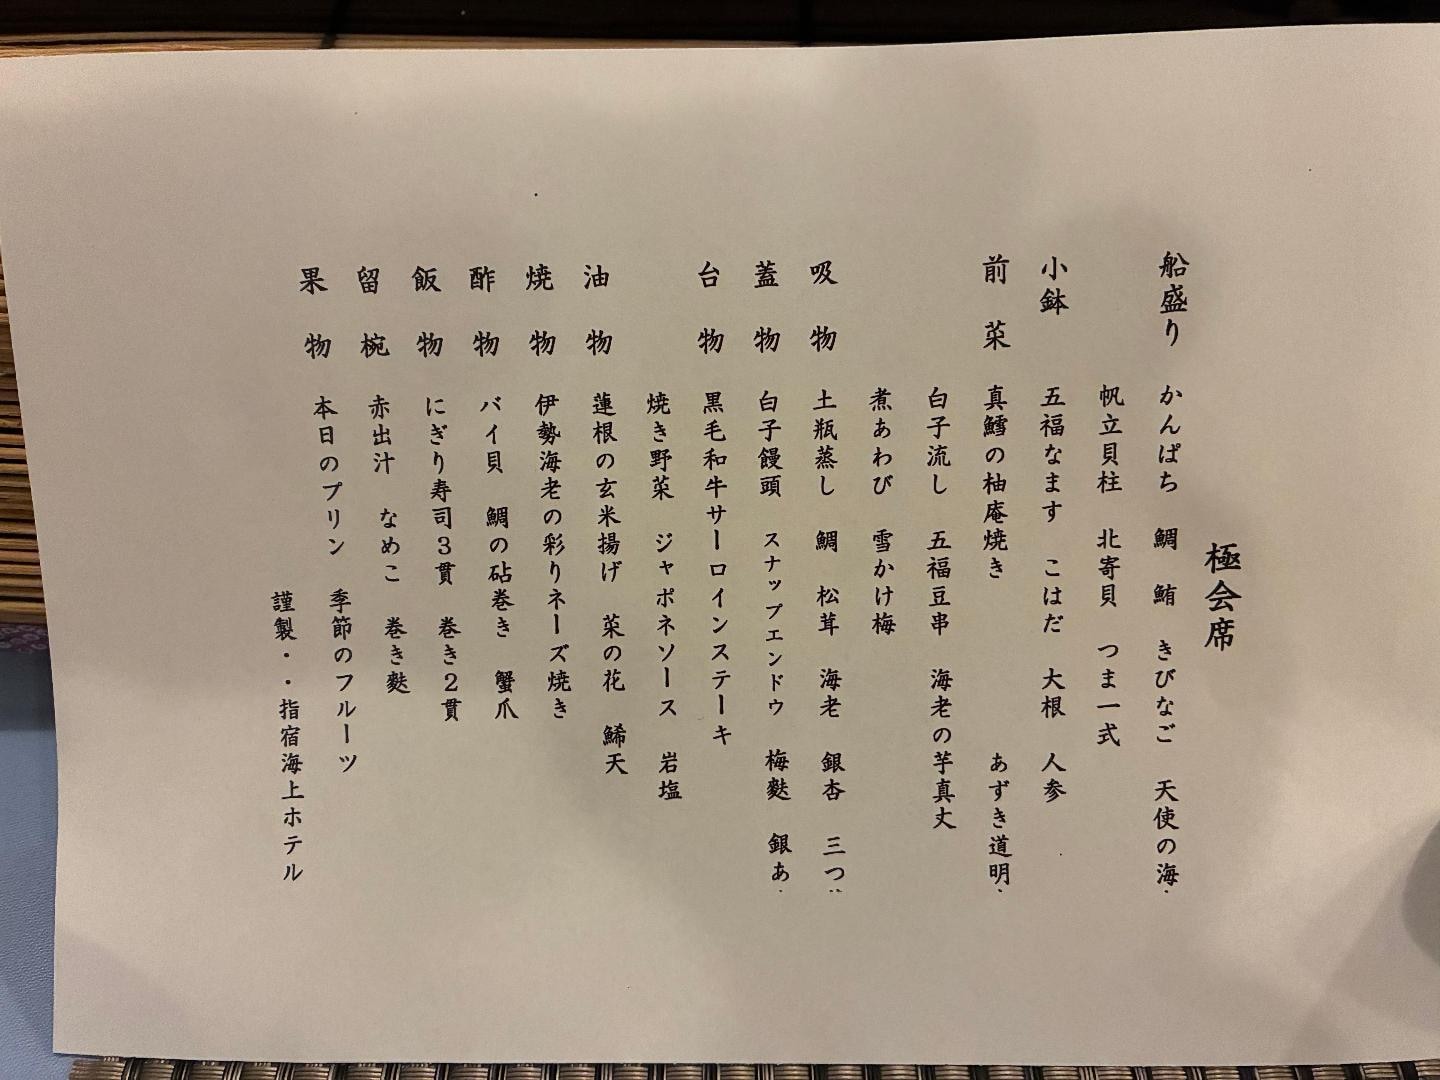 極会席
船盛り　かんぱち　鯛　鮪　きびなご　天使の海
帆立貝柱　北寄貝　つま一式
小鉢　五福なます　こはだ　大根　人参
前菜　真鱈の柚庵焼き　あずき道明
白子流し　五福豆串　海老の芋真丈
煮あわび　雪かけ梅
吸物　土瓶蒸し　鯛　松茸　海老　銀杏　三つ
蓋物　白子饅頭　スナップエンドウ　梅麩　銀あ
台物　黒毛和牛サーロインステーキ
焼き野菜　ジャポネソース　岩塩
油物　蓮根の玄米揚げ　菜の花　鯑天
焼物　伊勢海老の彩りネーズ焼き
酢物　バイ貝　鯛の砧巻き　蟹爪
飯物　にぎり寿司３貫　巻き２貫
留椀　赤出汁　なめこ　巻き麩
果物　本日のプリン　季節のフルーツ
謹製・・指宿海上ホテル